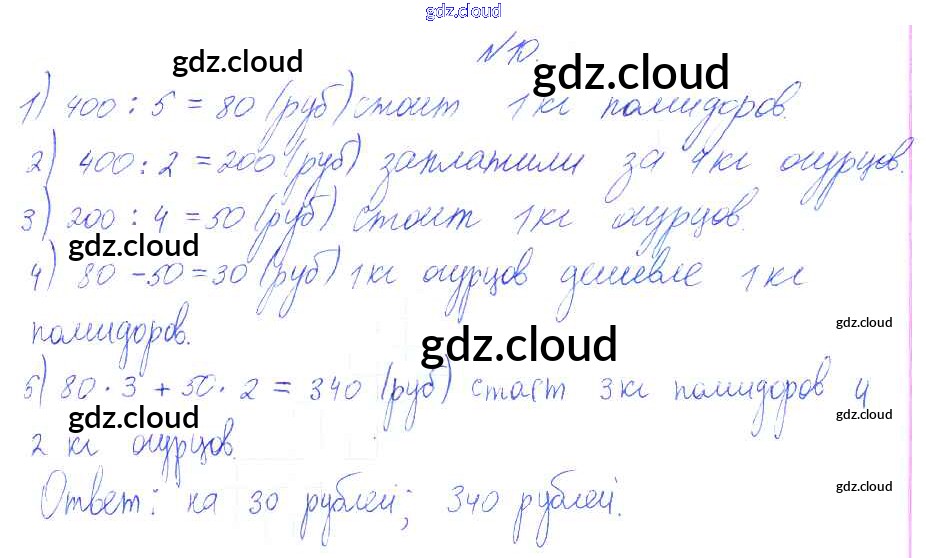 gdz.cloud
№10.
gdz.cloud gdz.cloud
1) 400 : 5 = 80 (руб) стоит 1 кг помидоров.
2) 400 : 2 = 200 (руб) заплатили за 4 кг огурцов.
3) 200 : 4 = 50 (руб) стоит 1 кг огурцов.
gdz.cloud
4) 80 - 50 = 30 (руб) 1 кг огурцов дешевле 1 кг
gdz.cloud
помидоров.
gdz.cloud
5) 80 · 3 + 50 · 2 = 340 (руб) стоят 3 кг помидоров и
gdz.cloud gdz.cloud
2 кг огурцов.
gdz.cloud
Ответ: на 30 рублей; 340 рублей.